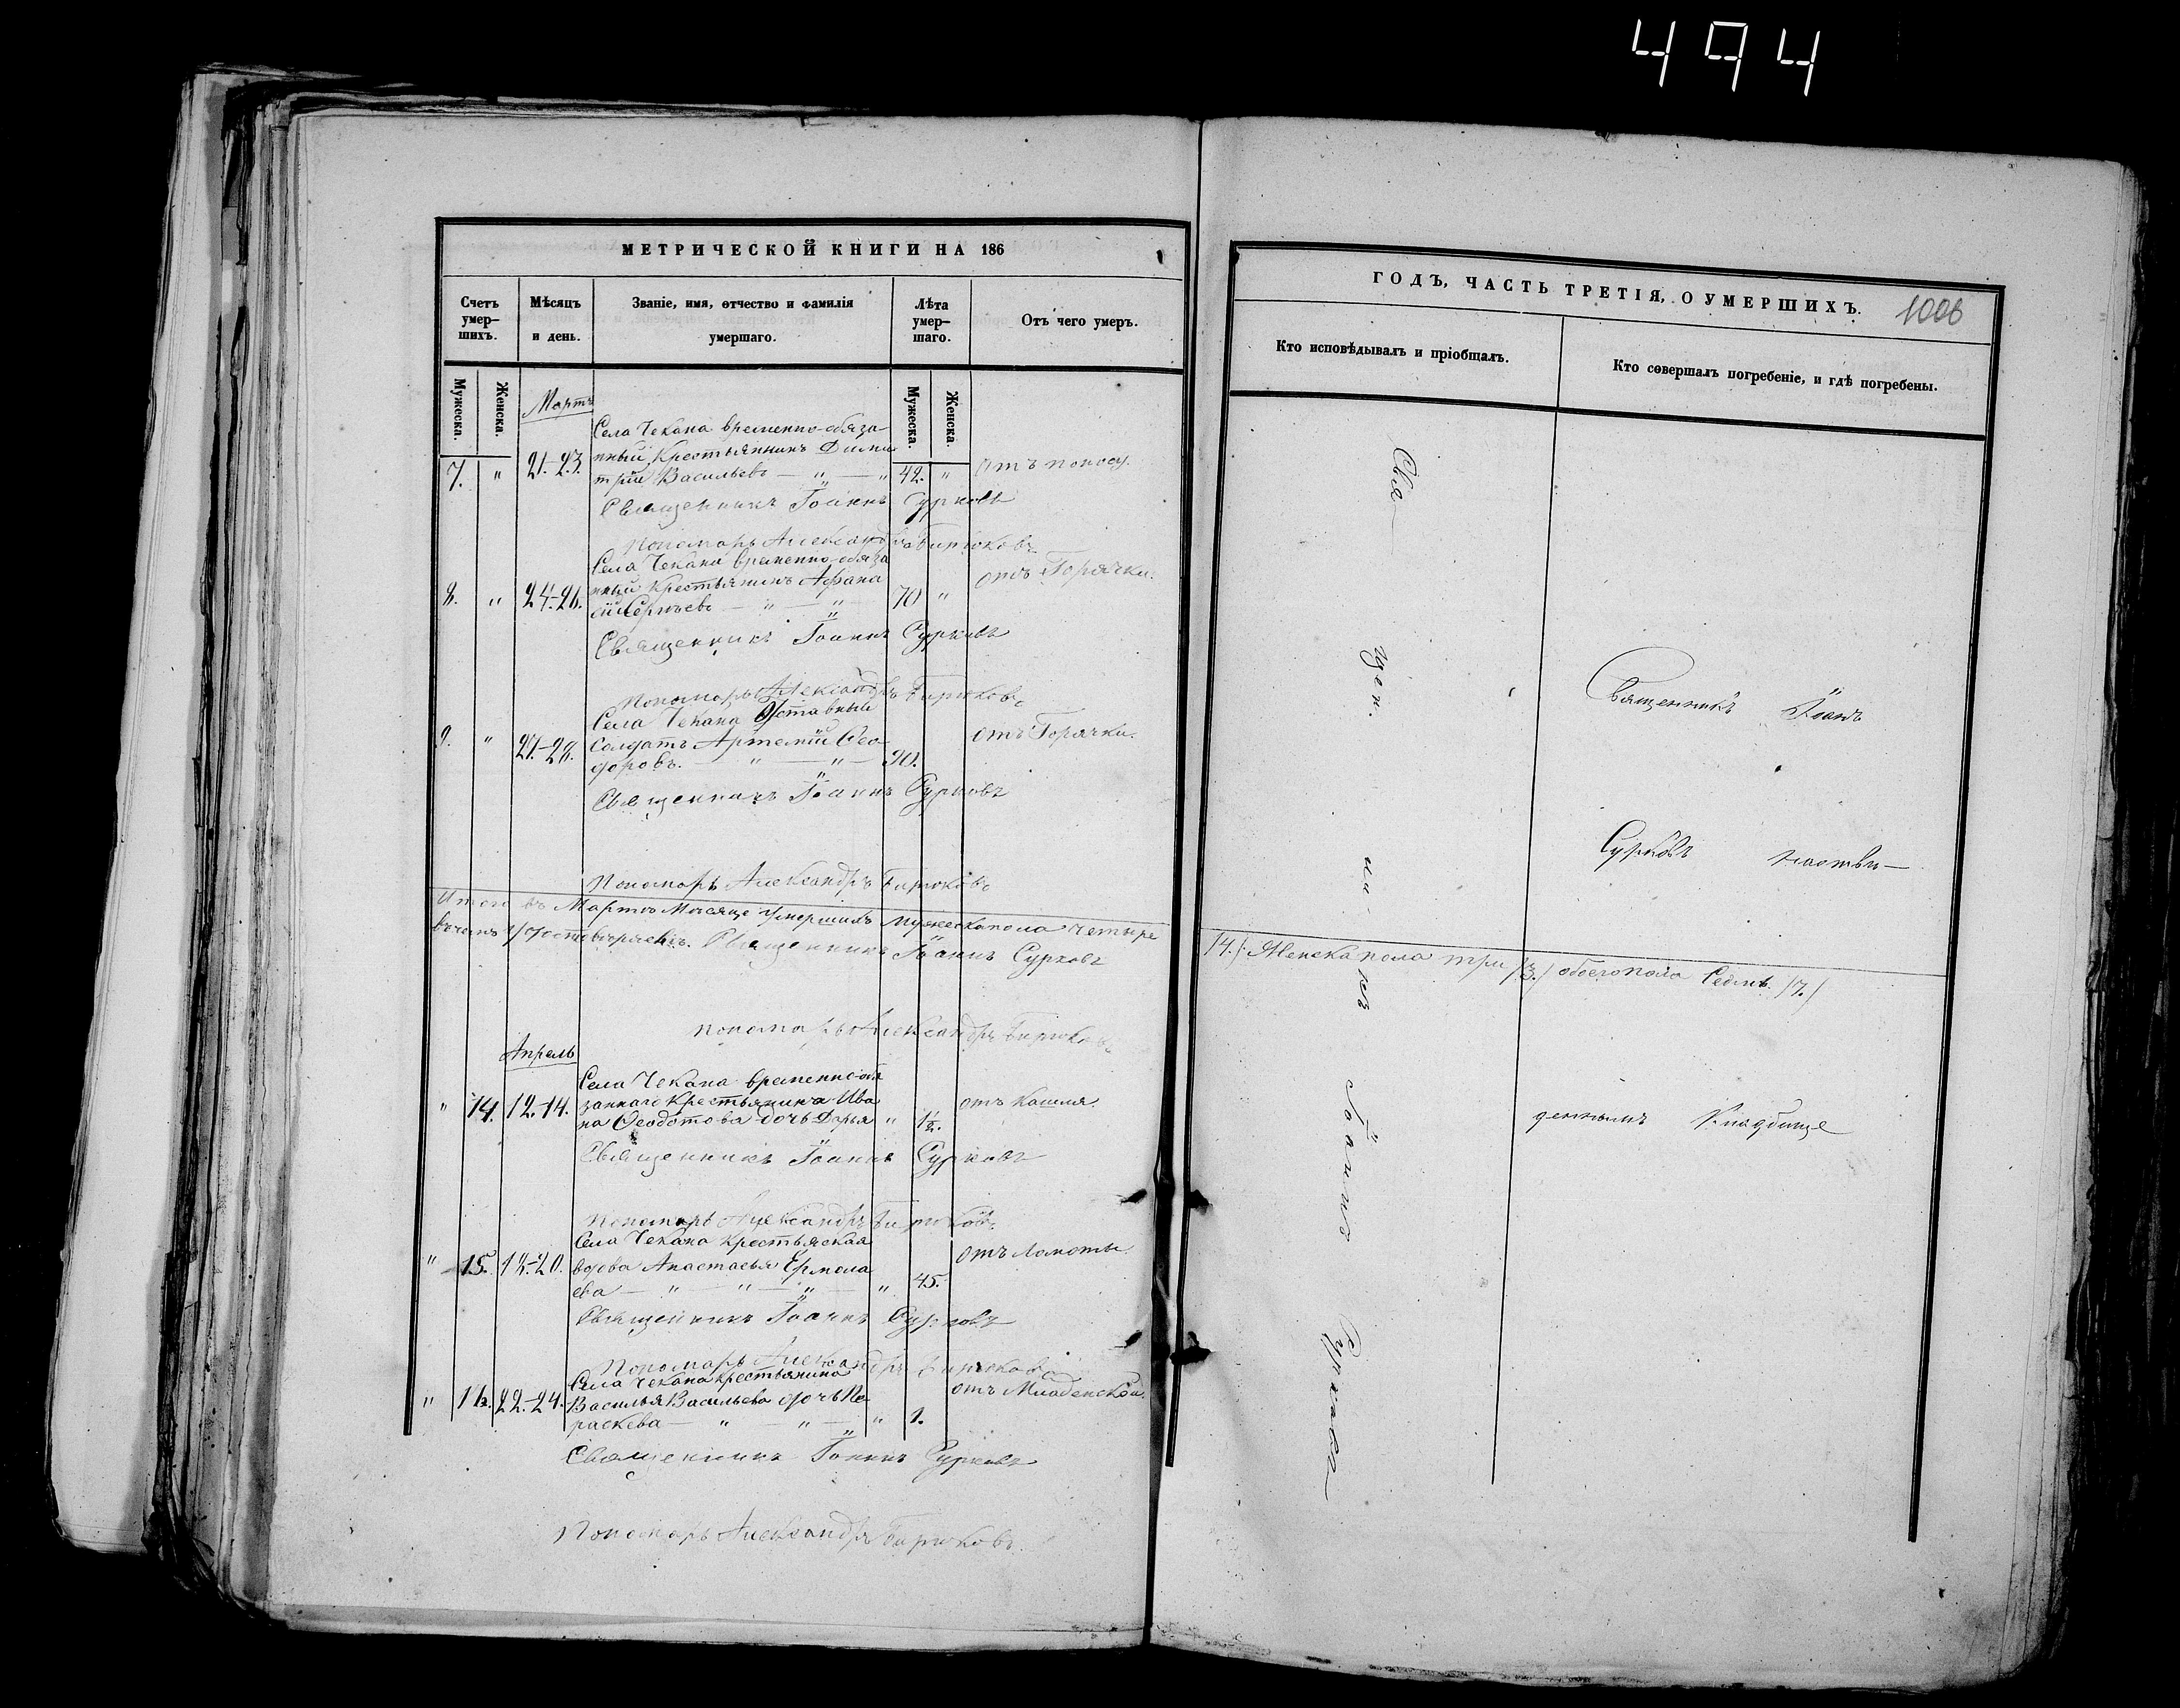 494
МЕТРИЧЕСКОЙ КНИГИ НА 186
Счетъ умер-шихъ.
Мѣсяцъ и день.
Званіе, имя, отчество и фамилія умершаго.
Лѣта умер-шаго.
Отъ чего умеръ.
Мужеска.
Женска.
Мужеска.
Женска.
Мартъ
Села Чекана временно-обяза
нный Крестьянинъ Дими
7. " 21-23. трій Васильевъ — " — " 42. " отъ поносу.
Священникъ Іоаннъ Сурковъ
Пономарь Александръ Бирюковъ
Села Чекана временно-обяза
нный Крестьянинъ Афана
8. " 24-26. сій Сергѣевъ — " — " 70 " отъ Горячки.
Священникъ Іоаннъ Сурковъ
Пономарь Александръ Бирюковъ
Села Чекана Отставный
9. " 27-28. Солдатъ Артемій Ѳео-
доровъ. — " — " — 90. отъ Горячки.
Священникъ Іоаннъ Сурковъ
Пономарь Александръ Бирюковъ
Итого въ Мартѣ Мѣсяце Умершихъ мужеска пола четыре
вочемъ и удостовѣряемъ. Священникъ Іоаннъ Сурковъ
пономарь Александръ Бирюковъ
Апрель
Села Чекана временно-обя
" 14. 12-14. заннаго Крестьянина Ива
на Ѳеодотова дочь Дарья " 1½. отъ кашля.
Священникъ Іоаннъ Сурковъ
Пономарь Александръ Бирюковъ
Села Чекана Крестьянская
" 15. 18-20. вдова Анастасья Ермола
ева — " — " — " — " 45. отъ ломоты.
Священникъ Іоаннъ Сурковъ
Пономарь Александръ Бирюковъ
Села Чекана крестьянина
" 16. 22-24. Василья Васильева дочь Па
раскева — " — " — " 1. отъ Младенской.
Священникъ Іоаннъ Сурковъ
Пономарь Александръ Бирюковъ
ГОДЪ, ЧАСТЬ ТРЕТІЯ, О УМЕРШИХЪ.
1006
Кто исповѣдывалъ и пріобщалъ.
Кто совершалъ погребеніе, и гдѣ погребены.
Свя-
щен.
ни.
къ
Іоаннъ
Сурковъ
Священникъ Іоаннъ
Сурковъ
/4./ Женска пола три /3./ обоего пола Седмь. /7./
деннымъ Кладбище